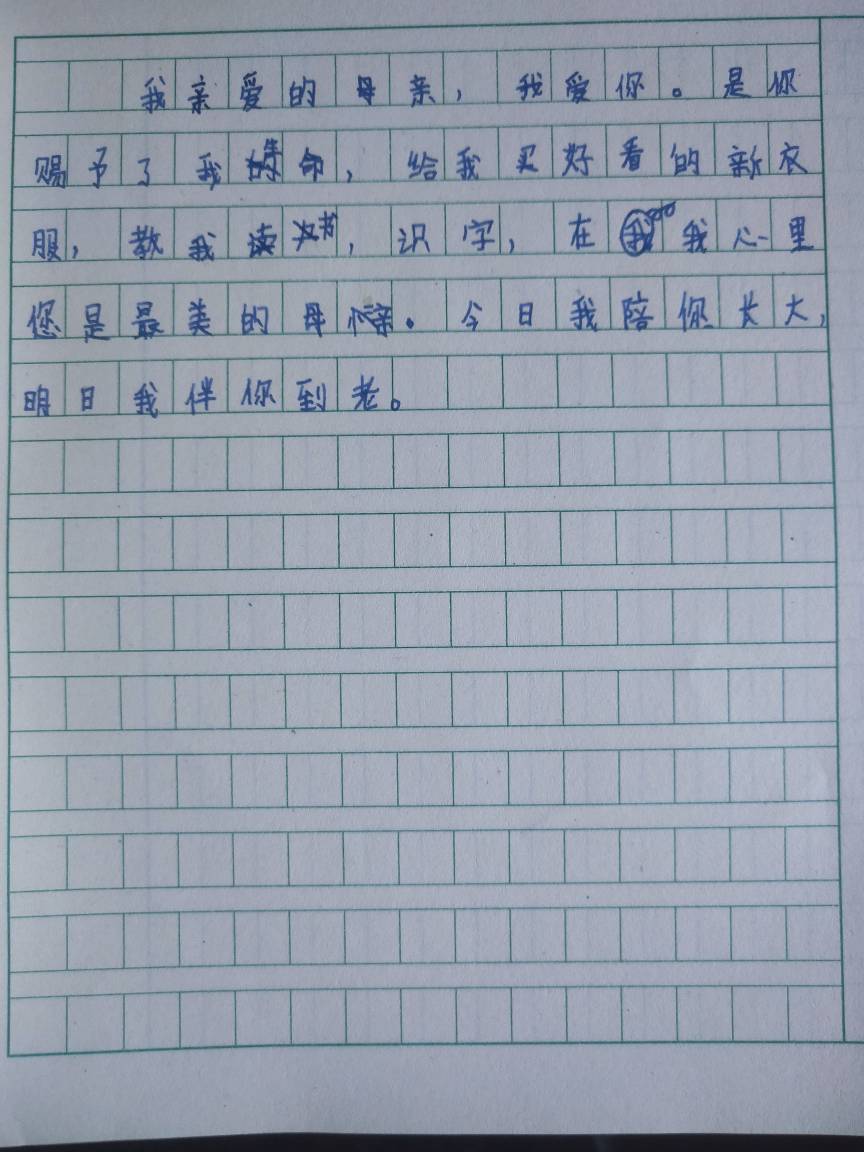 我亲爱的母亲，我爱你。是你
赐予了我生命，给我买好看的新衣
服，教我读书，识字，在我心里
您是最美的母亲。今日我陪你长大，
明日我伴你到老。